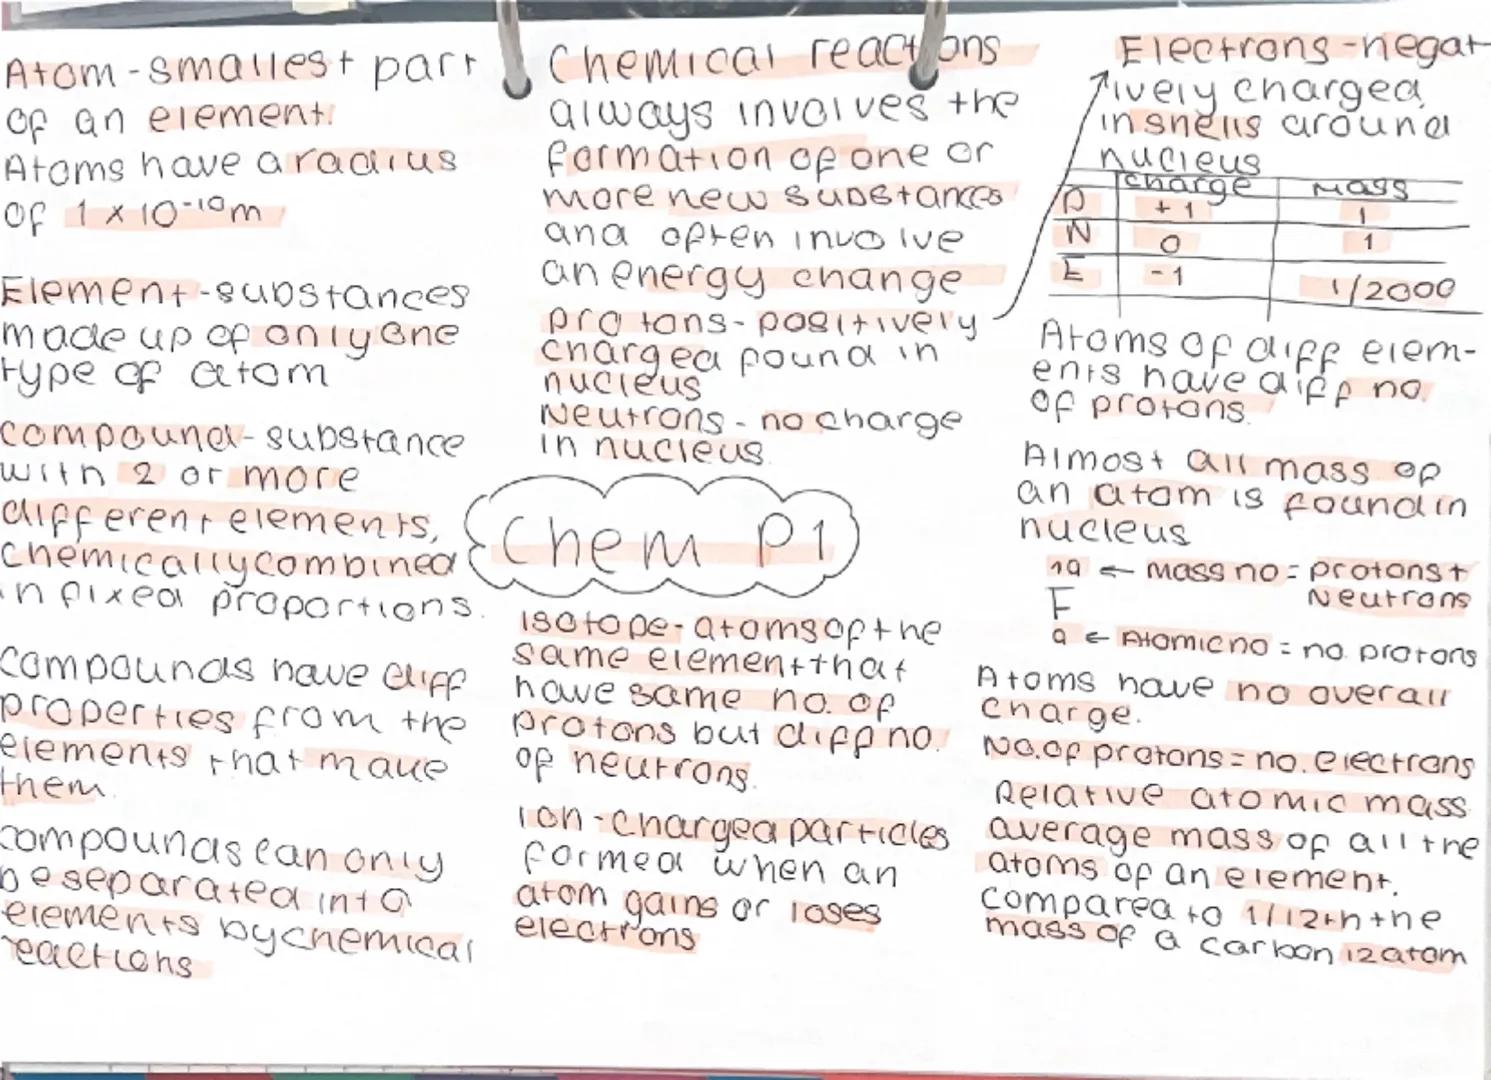 Atom - smallest part
of an element.
Atoms have a radius
of 1 x 10-10m
Element - substances
made up of only one
type of atom
compound - substance
with 2 or more
different elements,
chemically combined
in fixed proportions.
compounds have diff
properties from the
elements that make
them.
compounds can only
be separated into
elements by chemical
reactions
Chemical reactions
always involves the
formation of one or
more new substances
and often involve
an energy change
protons - positively
charged found in
nucleus
Neutrons - no charge
in nucleus.
Chem P1
isotope - atoms of the
same element that
have same no. of
protons but diff no.
of neutrons.
ion - charged particles
formed when an
atom gains or loses
electrons
Electrons - negat
ively charged,
in shells around
nucleus
charge Mass
P +1 1
N 0 1
E -1 1/2000
Atoms of diff elem-
ents have diff no.
of protons.
Almost all mass of
an atom is found in
nucleus
19 ← mass no = protons +
Neutrons
F
9 ← Atomic no = no. protons
Atoms have no overall
charge.
No. of protons = no. electrons
Relative atomic mass
average mass of all the
atoms of an element.
compared to 1/12th the
mass of a carbon 12 atom